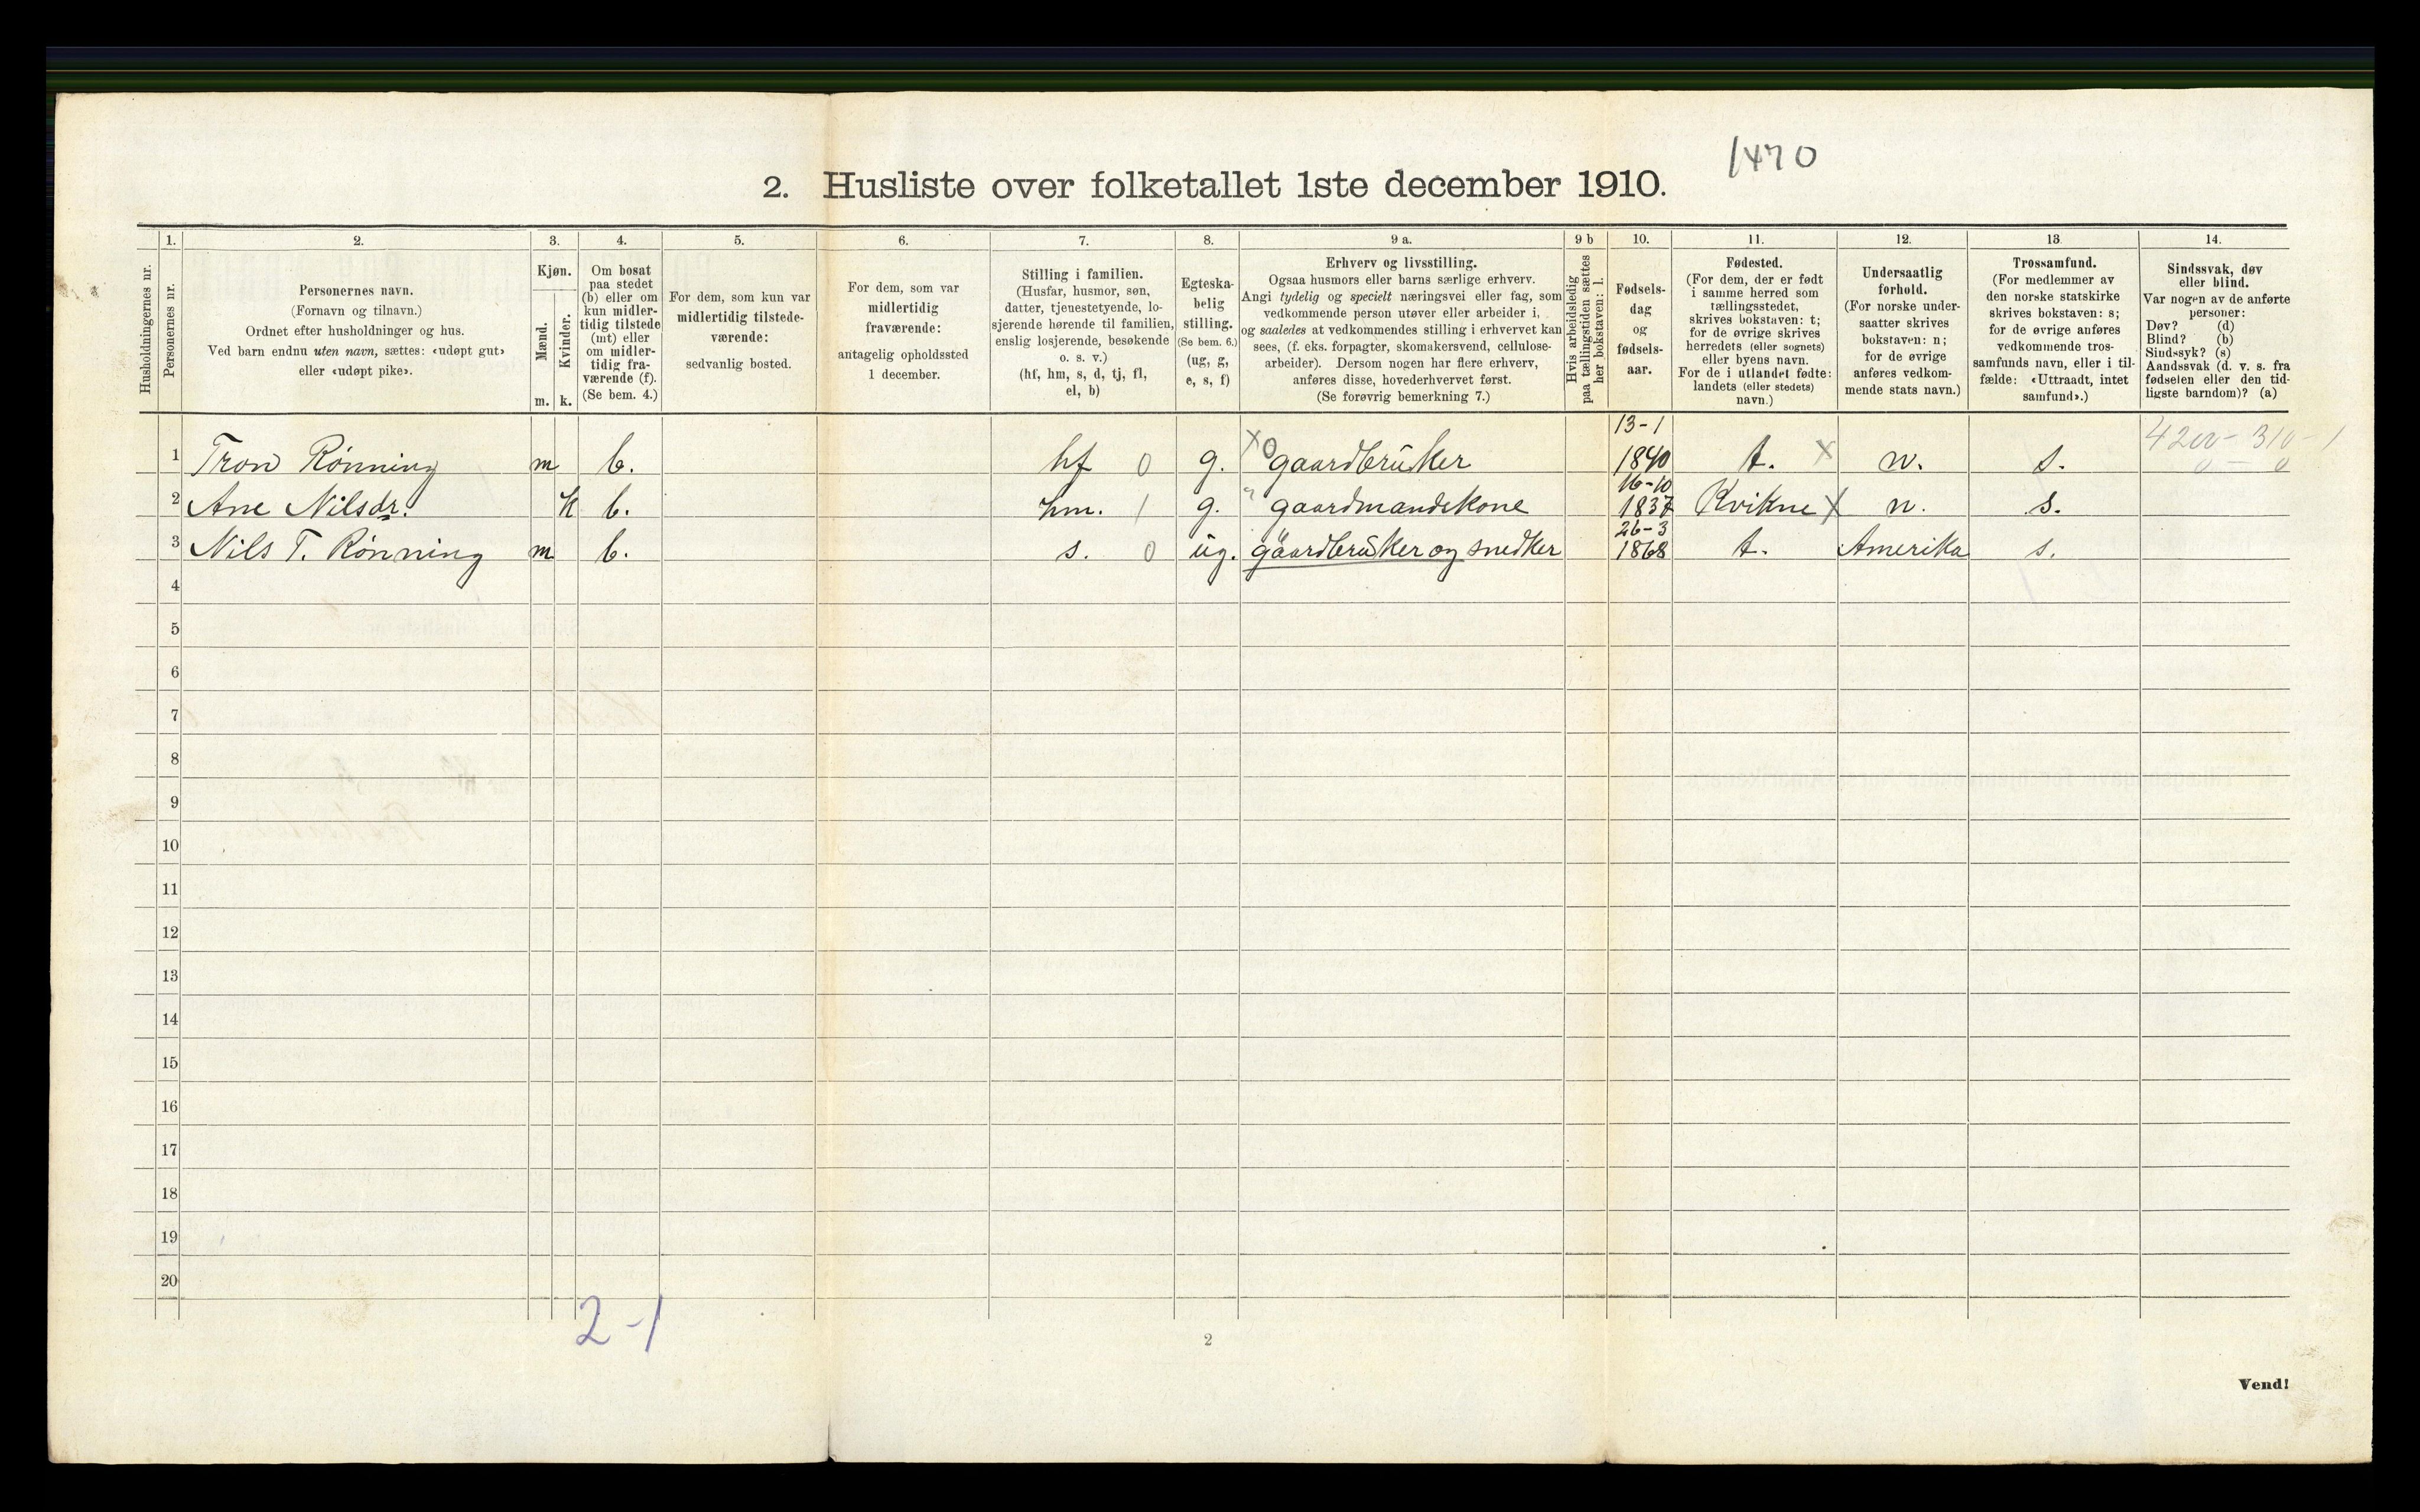 1470
2. Husliste over folketallet 1ste december 1910.
Husholdningernes nr.
1. Personernes nr.
2. Personernes navn.
(Fornavn og tilnavn.)
Ordnet efter husholdninger og hus.
Ved barn endnu uten navn, sættes: «udøpt gut»
eller «udøpt pike».
3. Kjøn.
Mænd. Kvinder.
m. k.
4. Om bosat
paa stedet
(b) eller om
kun midler-
tidig tilstede
(mt) eller
om midler-
tidig fra-
værende (f).
(Se bem. 4.)
5. For dem, som kun var
midlertidig tilstede-
værende:
sedvanlig bosted.
6. For dem, som var
midlertidig
fraværende:
antagelig opholdssted
1 december.
7. Stilling i familien.
(Husfar, husmor, søn,
datter, tjenestetyende, lo-
sjerende hørende til familien,
enslig losjerende, besøkende
o. s. v.)
(hf, hm, s, d, tj, fl,
el, b)
8. Egteska-
belig
stilling.
(Se bem. 6.)
(ug, g,
e, s, f)
9 a. Erhverv og livsstilling.
Ogsaa husmors eller barns særlige erhverv.
Angi tydelig og specielt næringsvei eller fag, som
vedkommende person utøver eller arbeider i,
og saaledes at vedkommendes stilling i erhvervet kan
sees, (f. eks. forpagter, skomakersvend, cellulose-
arbeider). Dersom nogen har flere erhverv,
anføres disse, hovederhvervet først.
(Se forøvrig bemerkning 7.)
9 b Hvis arbeidsledig
paa tællingstiden sættes
her bokstaven: l.
10. Fødsels-
dag
og
fødsels-
aar.
11. Fødested.
(For dem, der er født
i samme herred som
tællingsstedet,
skrives bokstaven: t;
for de øvrige skrives
herredets (eller sognets)
eller byens navn.
For de i utlandet fødte:
landets (eller stedets)
navn.)
12. Undersaatlig
forhold.
(For norske under-
saatter skrives
bokstaven: n;
for de øvrige
anføres vedkom-
mende stats navn.)
13. Trossamfund.
(For medlemmer av
den norske statskirke
skrives bokstaven: s;
for de øvrige anføres
vedkommende tros-
samfunds navn, eller i til-
fælde: «Uttraadt, intet
samfund».)
14. Sindssvak, døv
eller blind.
Var nogen av de anførte
personer:
Døv? (d)
Blind? (b)
Sindssyk? (s)
Aandssvak (d. v. s. fra
fødselen eller den tid-
ligste barndom)? (a)
4200 - 310 - 1
0 - 0
1 Tron Rønning m b. hf 0 g. X0 gaardbruker 13-1 1840 t. X n. s.
2 Ane Nilsdr. k b. hm. 1 g. " gaardmandskone 16-10 1837 Kvikne X n. s.
3 Nils T. Rønning m b. s. 0 ug. gaardbruker og snedker 26-3 1868 t. Amerika s.
4
5
6
7
8
9
10
11
12
13
14
15
16
17
18
19
20
2-1
2
Vend!